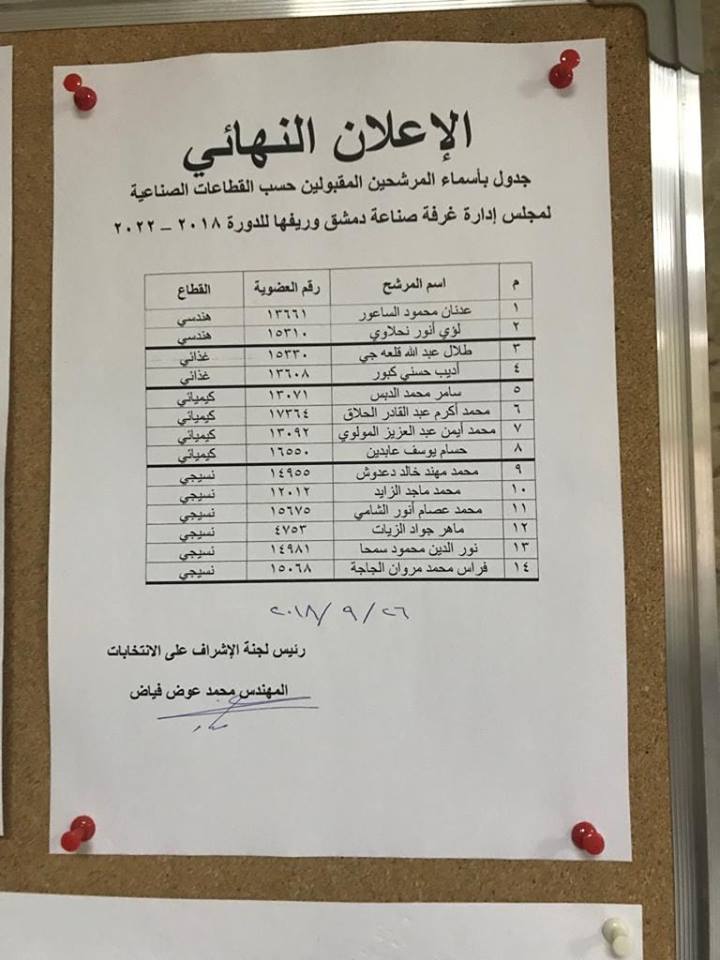 الإعلان النهائي
جدول بأسماء المرشحين المقبولين حسب القطاعات الصناعية
لمجلس إدارة غرفة صناعة دمشق وريفها للدورة ٢٠١٨ – ٢٠٢٢
م اسم المرشح رقم العضوية القطاع
١ عدنان محمود الساعور ١٣٦٦١ هندسي
٢ لؤي أنور نحلاوي ١٥٣١٠ هندسي
٣ طلال عبد الله قلعه جي ١٥٣٣٠ غذائي
٤ أديب حسني كبور ١٣٦٠٨ غذائي
٥ سامر محمد الدبس ١٣٠٧١ كيميائي
٦ محمد أكرم عبد القادر الحلاق ١٧٣٦٤ كيميائي
٧ محمد أيمن عبد العزيز المولوي ١٣٠٩٢ كيميائي
٨ حسام يوسف عابدين ١٦٥٥٠ كيميائي
٩ محمد مهند خالد دعدوش ١٤٩٥٥ نسيجي
١٠ محمد ماجد الزايد ١٢٠١٢ نسيجي
١١ محمد عصام أنور الشامي ١٥٦٧٥ نسيجي
١٢ ماهر جواد الزيات ٤٧٥٣ نسيجي
١٣ نور الدين محمود سمحا ١٤٩٨١ نسيجي
١٤ فراس محمد مروان الجاجة ١٥٠٦٨ نسيجي
٢٠١٨/٩/٢٦
رئيس لجنة الإشراف على الانتخابات
المهندس محمد عوض فياض